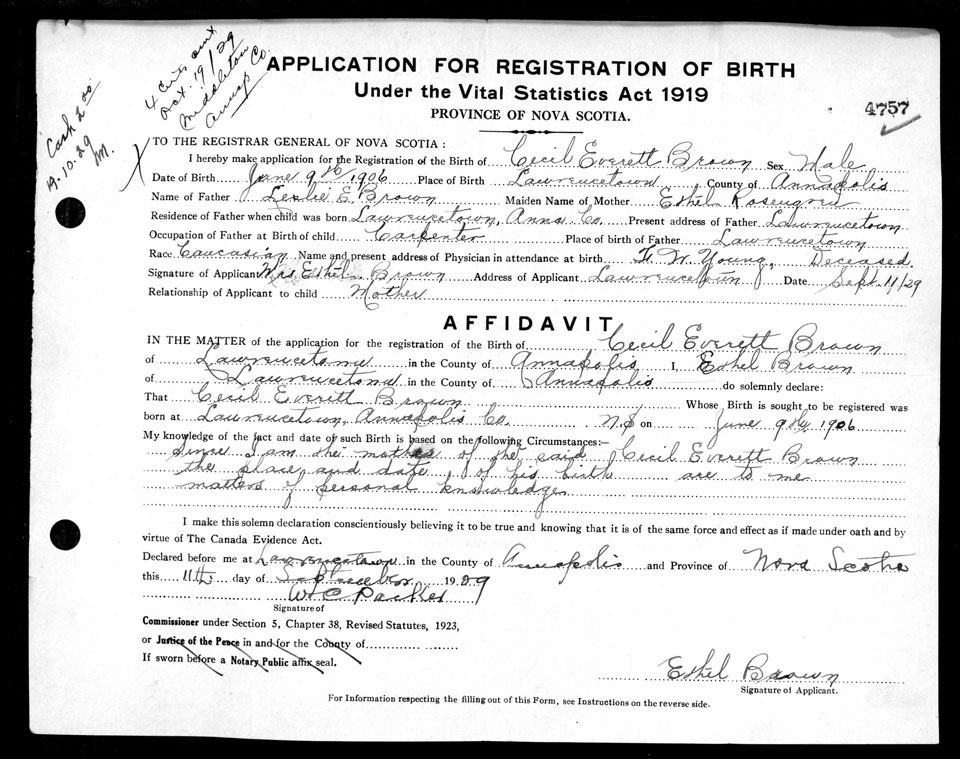 4 certs sent
Oct. 19/29
Middleton
Annap Co.
Cash 2.00
19-10-29
M.
APPLICATION FOR REGISTRATION OF BIRTH
Under the Vital Statistics Act 1919
PROVINCE OF NOVA SCOTIA.
4757
TO THE REGISTRAR GENERAL OF NOVA SCOTIA:
I hereby make application for the Registration of the Birth of Cecil Everett Brown Sex Male
Date of Birth June 9th 1906 Place of Birth Lawrencetown County of Annapolis
Name of Father Leslie E. Brown Maiden Name of Mother Ethel Rosengren
Residence of Father when child was born Lawrencetown, Anna. Co. Present address of Father Lawrencetown
Occupation of Father at Birth of child Carpenter Place of birth of Father Lawrencetown
Race Caucasian Name and present address of Physician in attendance at birth F. W. Young, Deceased.
Signature of Applicant Mrs. Ethel Brown Address of Applicant Lawrencetown Date Sept. 11/29
Relationship of Applicant to child Mother
AFFIDAVIT
IN THE MATTER of the application for the registration of the Birth of Cecil Everett Brown
of Lawrencetown in the County of Annapolis I, Ethel Brown
of Lawrencetown in the County of Annapolis do solemnly declare:
That Cecil Everett Brown Whose Birth is sought to be registered was
born at Lawrencetown, Annapolis Co. N.S on June 9th, 1906
My knowledge of the fact and date of such Birth is based on the following Circumstances:—
Since I am the mother of the said Cecil Everett Brown
the place and date of his birth are to me
matters of personal knowledge
I make this solemn declaration conscientiously believing it to be true and knowing that it is of the same force and effect as if made under oath and by
virtue of The Canada Evidence Act.
Declared before me at Lawrencetown in the County of Annapolis and Province of Nova Scotia
this 11th day of September 1929
W C Parker
Signature of
Commissioner under Section 5, Chapter 38, Revised Statutes, 1923,
or Justice of the Peace in and for the County of
If sworn before a Notary Public affix seal.
Ethel Brown
Signature of Applicant.
For Information respecting the filling out of this Form, see Instructions on the reverse side.